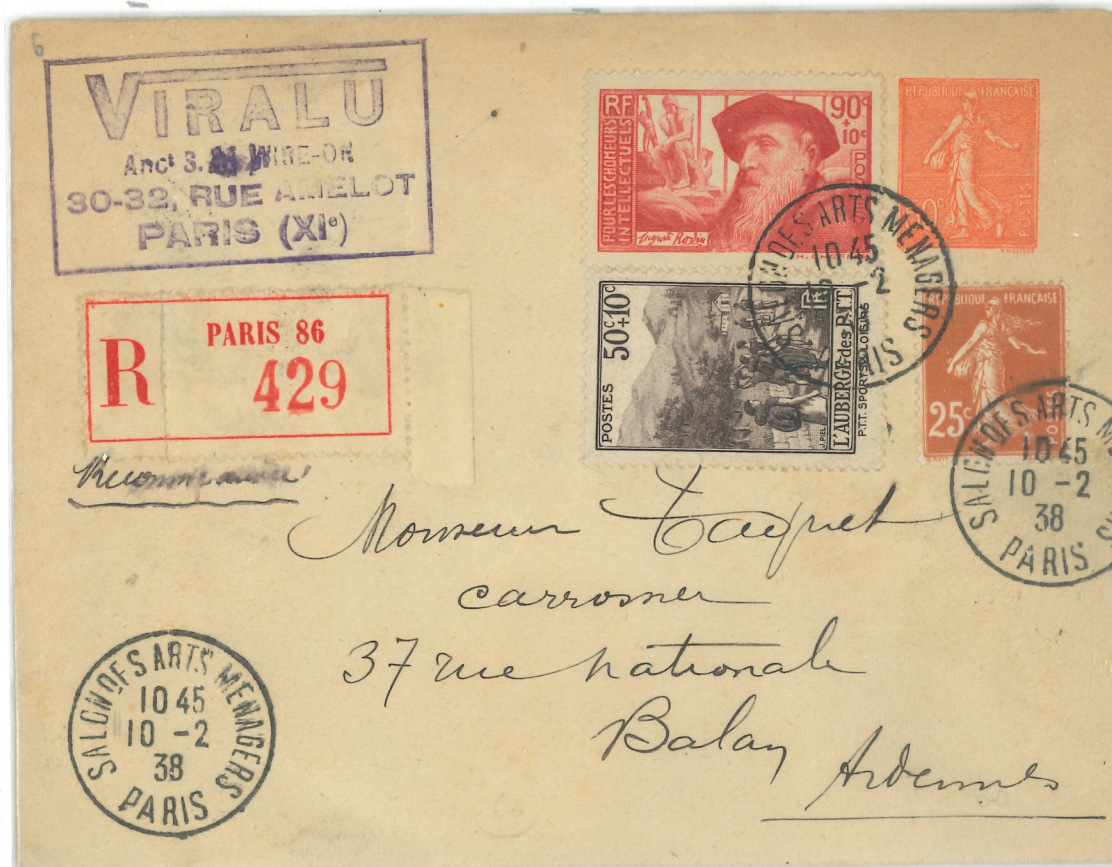 6
VIRALU
Anct S. WIRE-ON
30-32, RUE AMELOT
PARIS (XIe)
R
PARIS 86
429
Recommandée
RF
90c
+
10c
POUR LES CHOMEURS
INTELLECTUELS
Auguste Rodin
REPUBLIQUE FRANÇAISE
POSTES
POSTES
50c+10c
RF
L'AUBERGE des P.T.T
P.T.T. SPORTS & LOISIRS
J. PIEL
REPUBLIQUE FRANÇAISE
25c
SALON DES ARTS MENAGERS
10 45
-2
PARIS
SALON DES ARTS M
10 45
10 -2
38
PARIS
Monsieur Taquet
carrossier
37 rue nationale
Balan
Ardennes
SALON DES ARTS MENAGERS
10 45
10 -2
38
PARIS